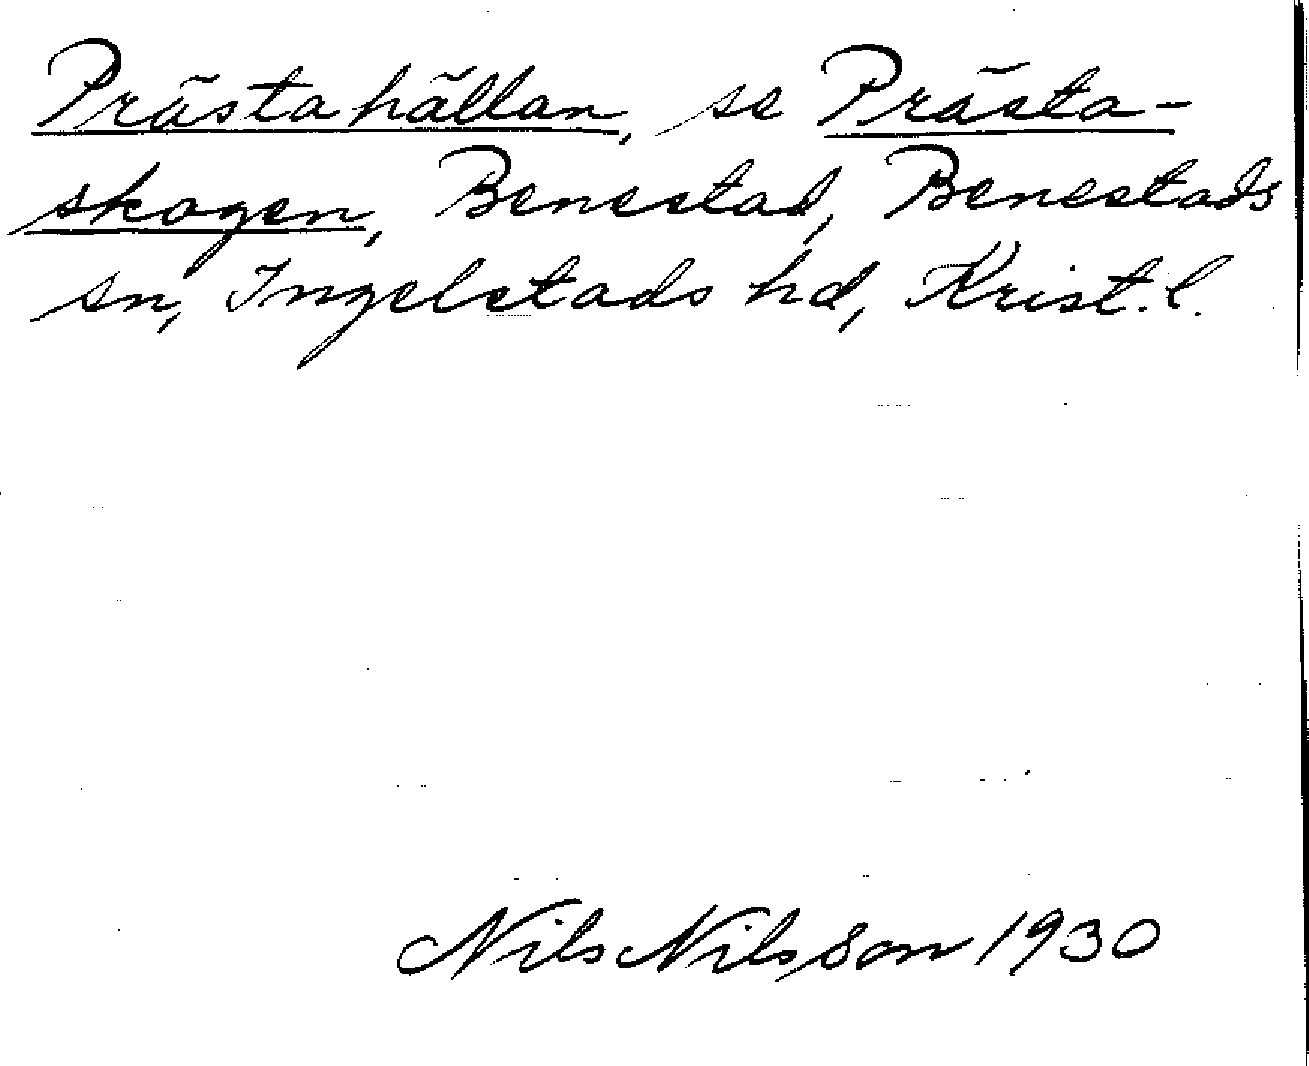 Prästahällan, se Prästa-
skogen, Benestad, Benestads
sn, Ingelstads hd, Krist. l.
Nils Nilsson 1930